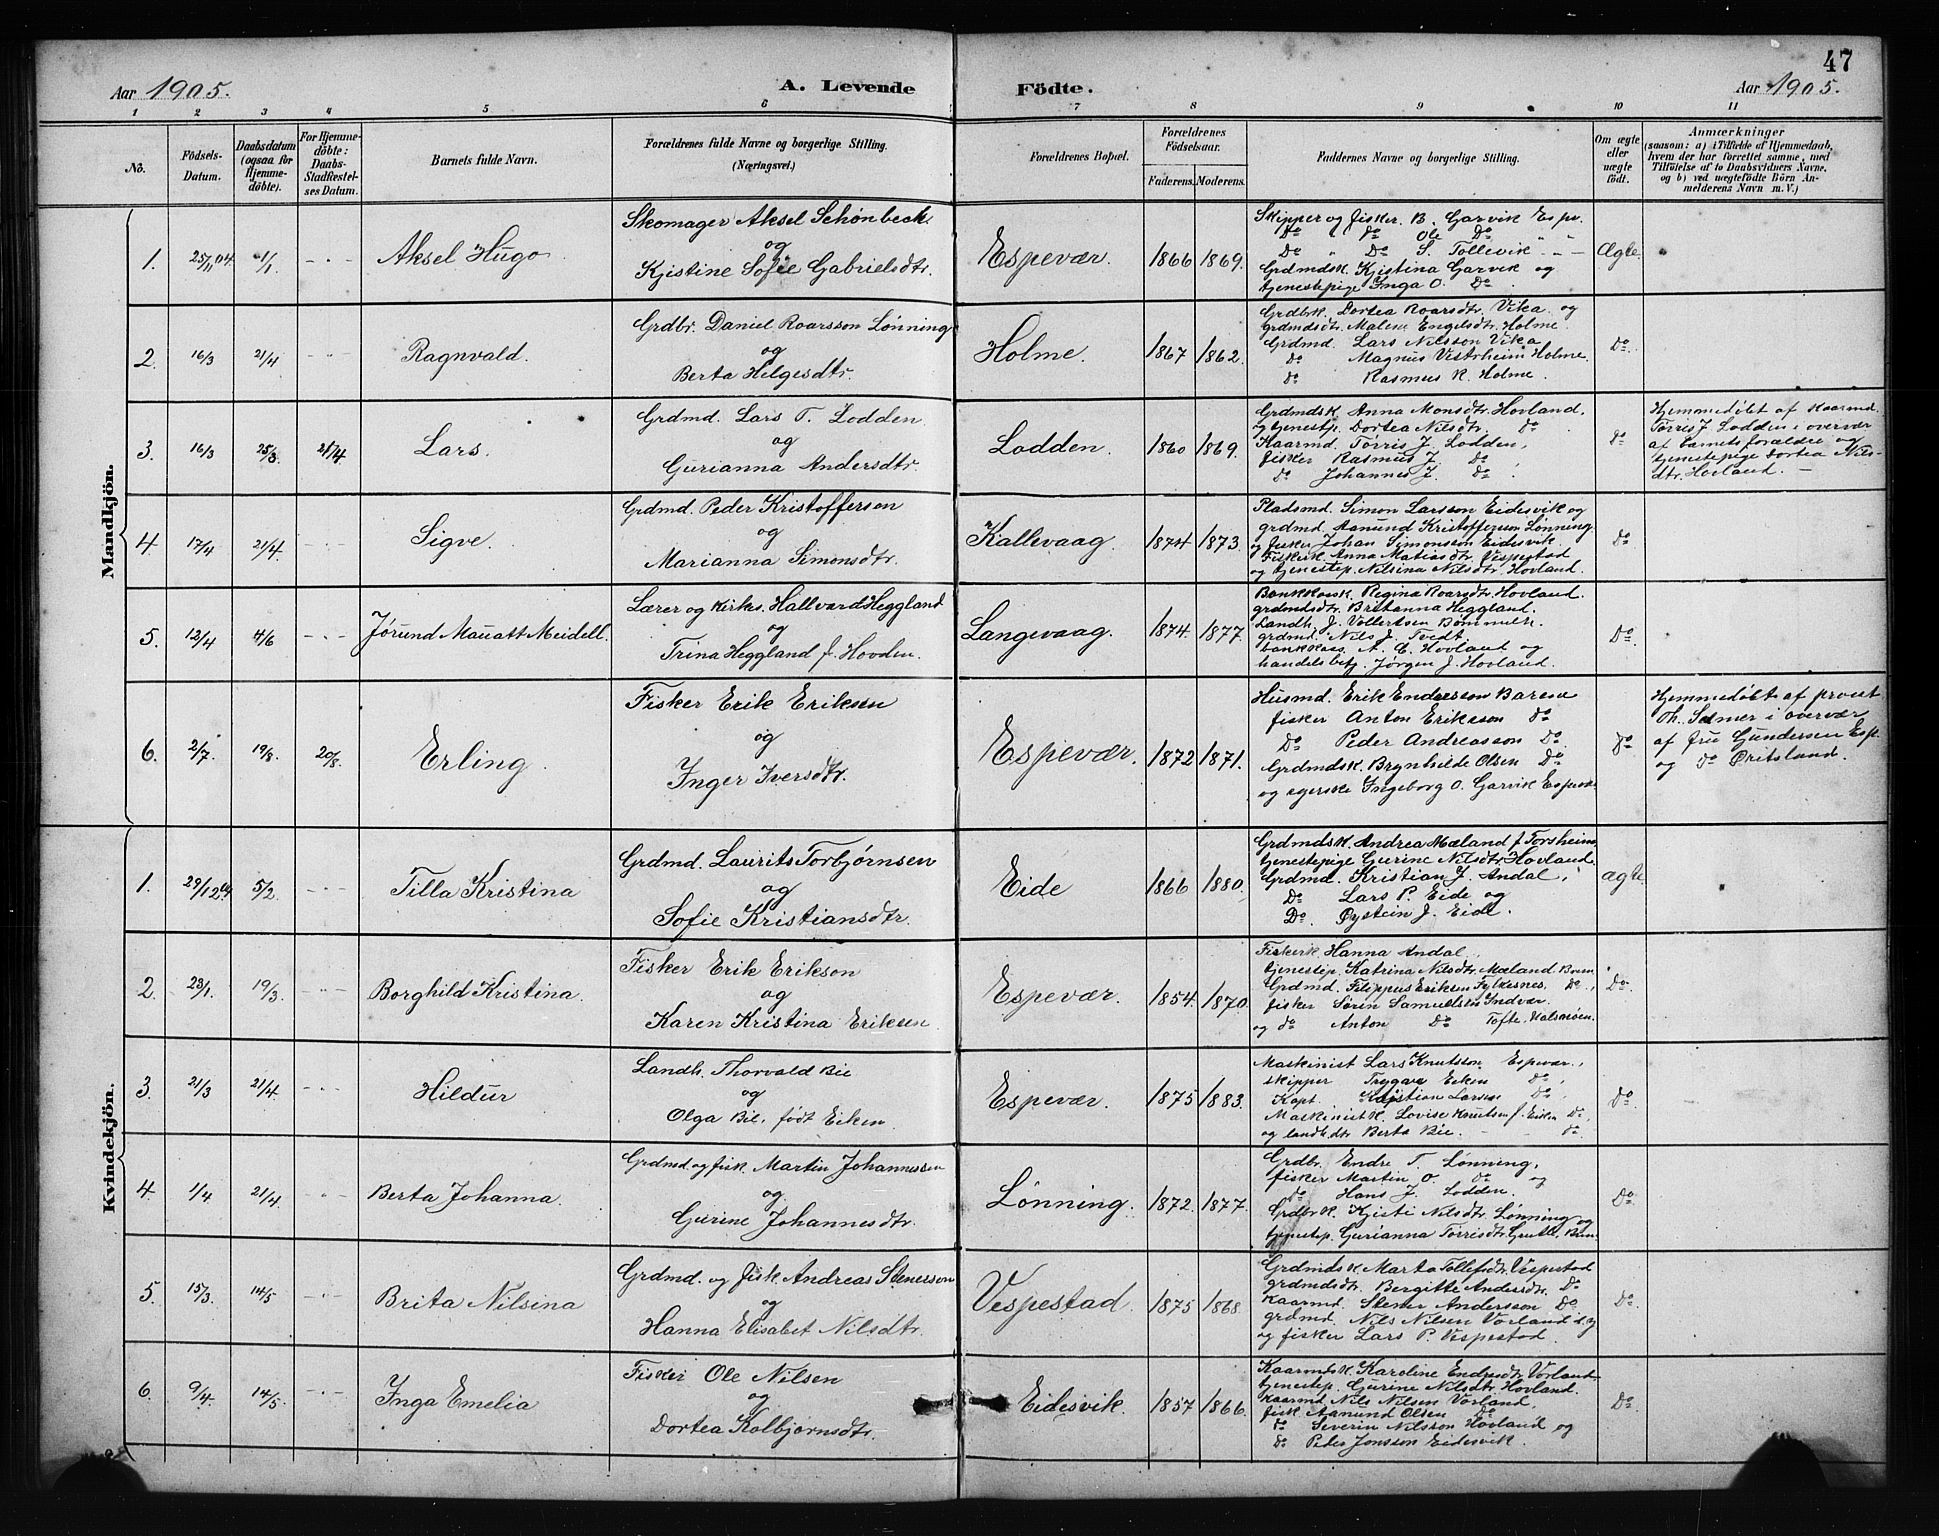 47
Aar 1905. A. Levende Födte. Aar 1905.
1 2 3 4 5 6 7 8 9 10 11
No.
Födsels-
Datum.
Daabsdatum
(ogsaa for
Hjemme-
döbte).
For Hjemme-
döbte:
Daabs-
Stadfæstel-
ses Datum.
Barnets fulde Navn.
Forældrenes fulde Navne og borgerlige Stilling.
(Næringsvei.)
Forældrenes Bopæl.
Forældrenes
Födselsaar.
Faderens. Moderens.
Faddernes Navne og borgerlige Stilling.
Om ægte
eller
uægte
födt.
Anmærkninger
(saasom: a) i Tilfælde af Hjemmedaab,
hvem der har forrettet samme, med
Tilföielse af to Daabsvidners Navne,
og b) ved uægtefödte Börn An-
melderens Navn m. V.)
Mandkjön.
1. 25/11 04. 1/1 -"- Aksel Hugo.
Skomager Aksel Schønbeck
og
Kjistine Sofie Gabrielsdtr.
Espevær. 1866 1869.
Skipper og fisker B. Garvik Espv.
Do Do Ole Do
Do " Do S. Tollevik " -
Grdmdsk. Kjistina Garvik og
tjenestepige Inga O. Do.
Ægte.
2. 16/3 21/4 -"- Ragnvald.
Grdbr. Daniel Roarsson Lønning
og
Berta Helgesdtr.
Holme. 1867 1862.
Grdbrk. Dortea Roarsdtr. Vika og
grdmdsdtr. Malene Engelsdtr. Holme
Grdmd. Lars Nilsson Vika
do Magnus Vestrheim Holme
do Rasmus K. Holme.
Do
3. 16/3 25/3 21/4 Lars.
Grdmd. Lars T. Lodden
og
Gurianna Andersdtr.
Lodden. 1860 1869.
Grdmdsk. Anna Monsdtr. Hovland,
og tjenestp. Dortea Nilsdtr. Do
Kaarmd. Tørris J. Lodden,
fisker Rasmus J. Do
Do Johannes J. Do
Do
Hjemmedøbt af kaarmd.
Torris J. Lodden i overvær
af barnets forældre og
tjenestepige Dortea Nils-
dtr. Hovland. -
4. 17/4 21/4 -"- Sigve.
Grdmd. Peder Kristofferson
og
Marianna Simonsdtr.
Kallevaag. 1874 1873.
Pladsmd. Simon Larsson Eidesvik og
grdmd. Aanund Kristofferson Lønning
og fisker Johan Simonsson Eidesvik.
Fiskerk. Anna Matiasdtr. Vespestad
og tjenestep. Nilsina Nilsdtr. Hovland.
Do
5. 12/4 4/6 -"- Jørund Mauatt Meidell.
Lærer og kirkes. Hallvard Heggland
og
Trina Heggland f. Hovden.
Langevaag. 1874. 1877.
Bankkask. Regina Roarsdtr. Hovland.
grdmdsdtr. Britanna Heggland.
Landh. J. Vollertsen Bømmelh.
grdmd. Nils J. Tvedt.
bankkass. A. C. Hovland og
handelsbetj. Jørgen J. Hovland.
Do
6. 2/7 19/8 20/8 Erling.
Fisker Erik Eriksen
og
Inger Iversdtr.
Espevær. 1872 1871.
Husmd. Erik Enderson Barene
fisker Anton Eriksson do
Do Peder Andreasson Do
Grdmdsk. Brynhilde Olsen Do
og Ingeborg O. Garvik Espevær
Do
Hjemmedøbt af provst
Th. Selmer i overvær
af fru Gundersen Esp.
og Do Øritsland.
Kvindekjön.
1. 29/12 04 5/2 -"- Tilla Kristina
Grdmd. Laurits Torbjørnsen
og
Sofie Kristiansdtr.
Eide 1866 1880.
Grdmdsk. Andrea Mæland f. Torsheim
tjenestepige Gurine Nilsdtr. Hovland.
Grdmd. Kristian J. Andal,
Do Lars P. Eide og
Do. Øystein J. Eide.
ægte.
2. 23/1. 19/3 -"- Borghild Kristina.
Fisker Erik Erikson
og
Karen Kristina Eriksen.
Espevær. 1854. 1870.
Fiskerk. Hanna Andal,
tjenestep. Katrina Nilsdtr. Mæland Brem.
Grdmd. Filippus Eriksen Fylkesnes, Do,
fisker Søren Samuelsen Indvær.
og do Anton Do Tofte,
Do
3. 21/3 21/4 -"- Hildur
Landh. Thorvald Bie
og
Olga Bie, født Eiken.
Espevær. 1875 1883.
Maskinist Lars Knutsson Espevær,
skipper Trygve Eiken Do,
Kapt. Kristian Larsen Do,
Maskinistk. Lovise Knutsen f. Eiken Do
og landh.dtr. Berta Bie. - - do.
Do
4. 1/4 21/4 -"- Berta Johanna.
Grdmd. og fisk. Martin Johannessen
og
Gurine Johannesdtr.
Lønning. 1872. 1877.
Grdbr. Endre T. Lønning,
fisker Martin O. do og
do Hans J. Lodden.
Grdbrk. Kjisti Nilsdtr. Lønning og
tjenestep. Gurianna Torrisdtr.
Do
5. 15/3. 14/5 -"- Brita Nilsina
Grdmd. og fisk Andreas Stenersson
og
Hanna Elisabet Nilsdtr.
Vespestad. 1875 1868.
Grdmdsk. Marta Tollefsdtr. Vespestad
grdmdsdtr. Bergitte Andersdtr. Do
kaarmd. Stener Andersson Do
grdmd. Nils Nilsen Vorland s.y.
og fisker Lars P. Vespestad.
Do
6. 9/4. 14/5 -"- Inga Emelia
Fisker Ole Nilsen
og
Dortea Kolbjørnsdtr.
Eidesvik 1857 1866.
Kaarmdsk. Karoline Endresdtr. Vorland
tjenestep. Gurine Nilsdtr. Hovland.
kaarmd. Nils Nilsen Vorland,
fisk. Aamund Olsen Do
do Severin Nilsson Hovland og
Do Peder Jonsson Eidesvik.
Do